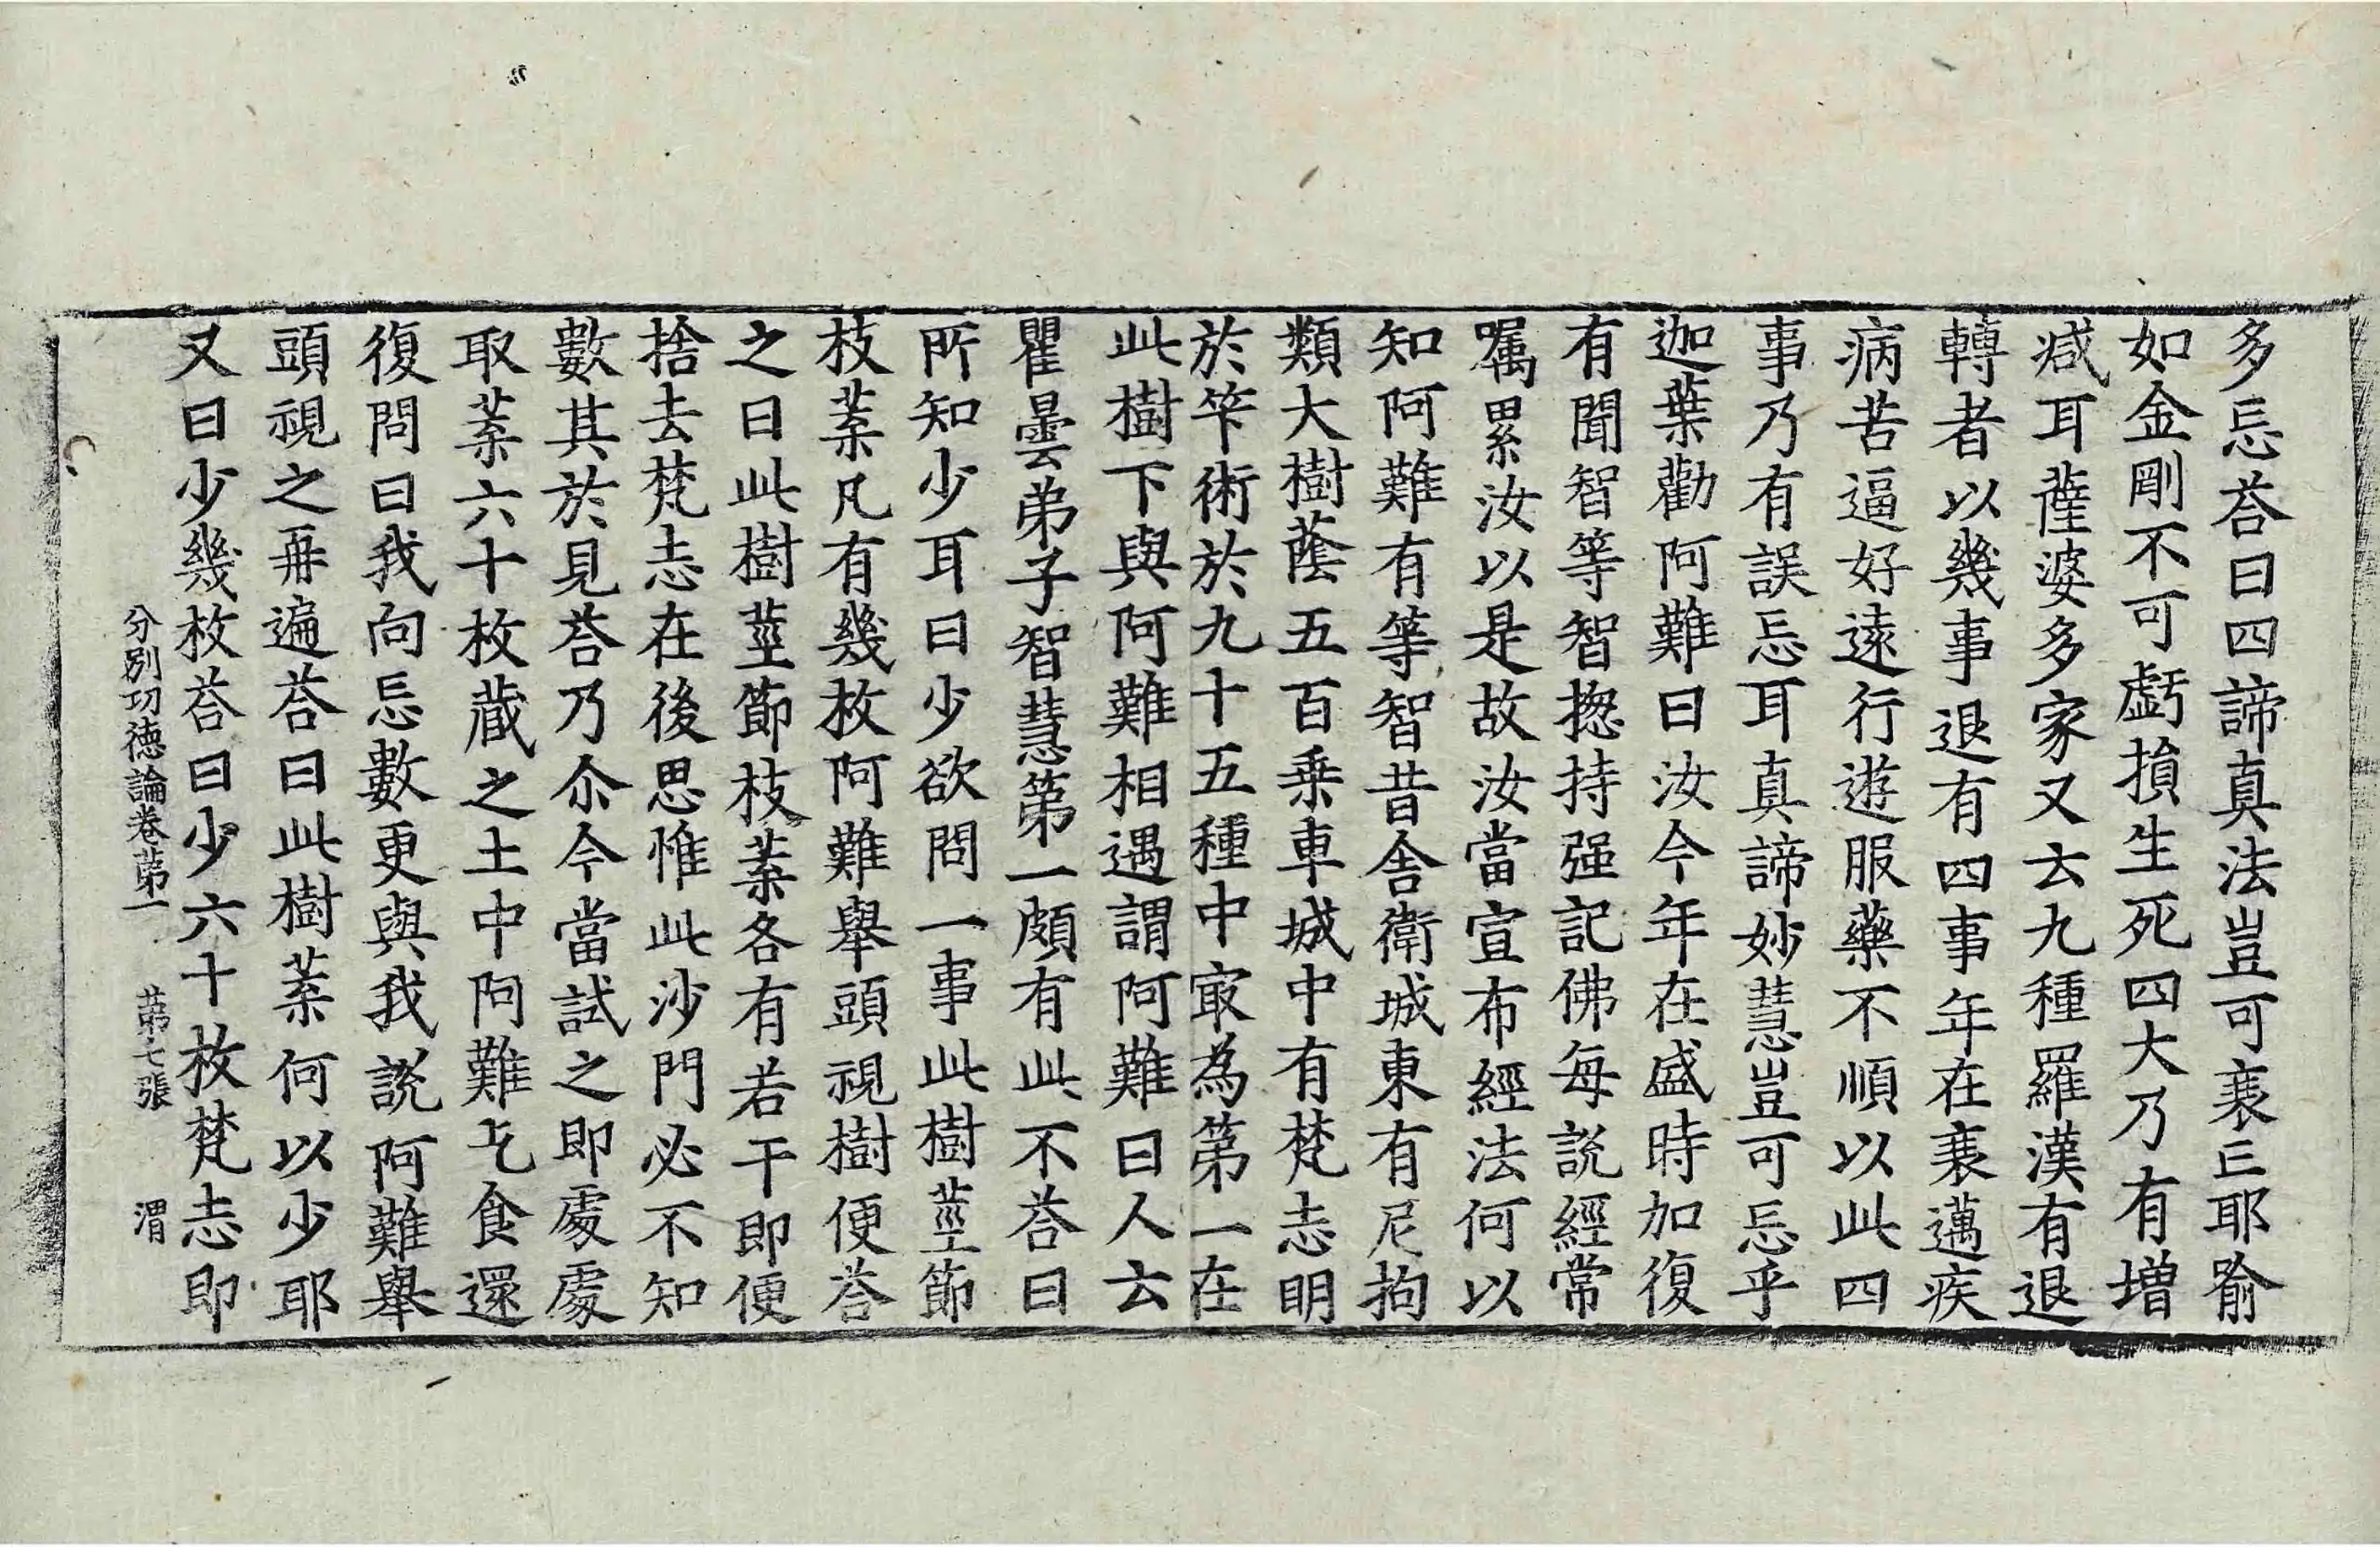 多忘荅曰四諦真法豈可衰亡耶喻
如金剛不可虧損生死四大乃有增
減耳薩婆多家又云九種羅漢有退
轉者以幾事退有四事年在衰邁疾
病苦逼好遠行遊服藥不順以此四
事乃有誤忘耳真諦妙慧豈可忘乎
迦葉勸阿難曰汝今年在盛時加復
有聞智等智揔持强記佛每說經常
囑累汝以是故汝當宣布經法何以
知阿難有等智昔舍衛城東有尼拘
類大樹蔭五百乗車城中有梵志明
於筭術於九十五種中㝡為第一在
此樹下與阿難相遇謂阿難曰人云
瞿曇弟子智慧第一頗有此不荅曰
所知少耳曰少欲問一事此樹莖節
枝葉凡有幾枚阿難舉頭視樹便荅
之曰此樹莖節枝葉各有若干即便
捨去梵志在後思惟此沙門必不知
數其於見荅乃尒今當試之即處處
取葉六十枚蔵之土中阿難乞食還
復問曰我向忘數更與我說阿難舉
頭視之再遍荅曰此樹葉何以少耶
又曰少幾枚荅曰少六十枚梵志即
分別功德論卷第一 第七張 渭